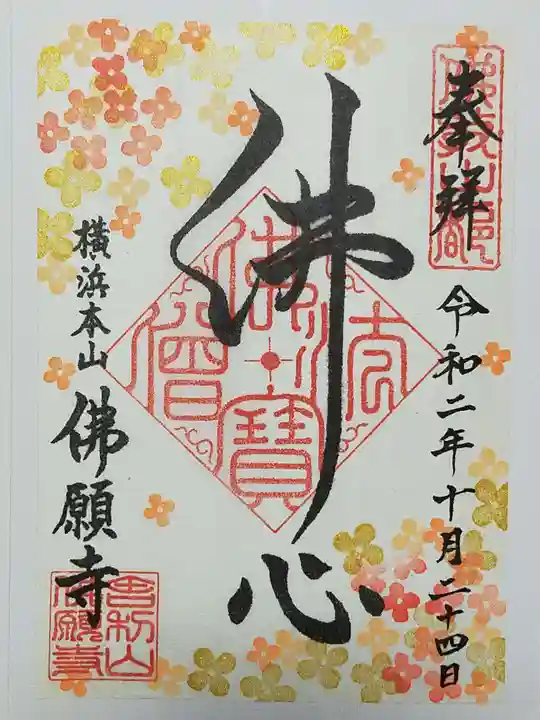 奉拜
令和二年十月二十四日
佛心
佛法僧寳
横浜本山
佛願寺